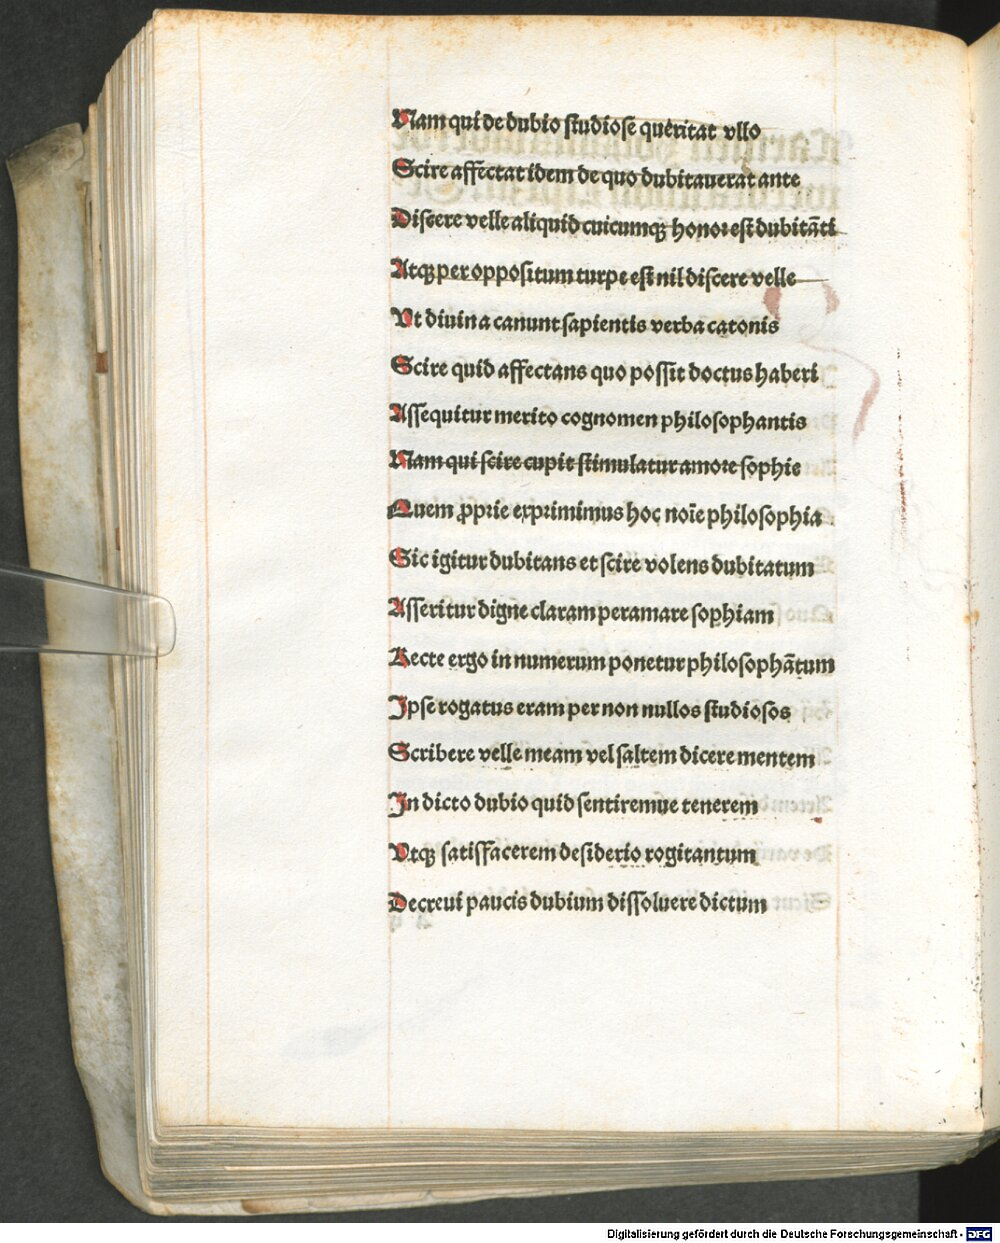 Nam qui de dubio studiose queritat vllo
Scire affectat idem de quo dubitauerat ante
Discere velle aliquid cuicumqꝫ honor est dubitāti
Atqꝫ per oppositum turpe est nil discere velle
Vt diuina canunt sapientis verba catonis
Scire quid affectans quo possit doctus haberi
Assequitur merito cognomen philosophantis
Nam qui scire cupit stimulatur amore sophie
Quem ꝓprie exprimimus hoc noīe philosophia
Sic igitur dubitans et scire volens dubitatum
Asseritur digne claram peramare sophiam
Recte ergo in numerum ponetur philosophātum
Ipse rogatus eram per non nullos studiosos
Scribere velle meam vel saltem dicere mentem
In dicto dubio quid sentiremue tenerem
Vtqꝫ satisfacerem desiderio rogitantum
Decreui paucis dubium dissoluere dictum
Digitalisierung gefördert durch die Deutsche Forschungsgemeinschaft - DFG